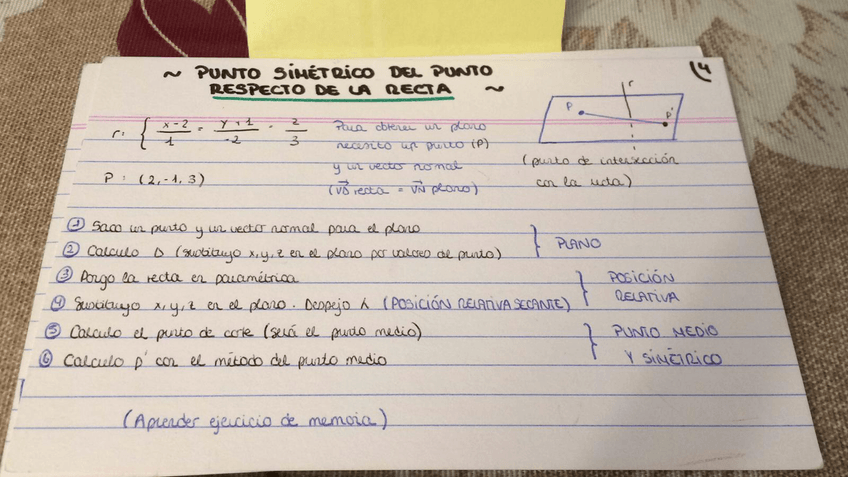 ~ PUNTO SIMÉTRICO DEL PUNTO
RESPECTO DE LA RECTA ~
14
r: { x-2/1 = y+1/-2 = z/3
P: (2,-1,3)
Para obtener un plano
necesito un punto (P)
y un vector normal
(VD recta = VN plano)
r
P
P'
(punto de intersección
con la recta)
① Saco un punto y un vector normal para el plano
② Calculo D (sustituyo x, y, z en el plano por valores del punto)
} PLANO
③ Pongo la recta en paramétrica
④ Sustituyo x, y, z en el plano. Despejo λ (POSICIÓN RELATIVA SECANTE)
} POSICIÓN
RELATIVA
⑤ Calculo el punto de corte (será el punto medio)
⑥ Calculo p' con el método del punto medio
} PUNTO MEDIO
Y SIMÉTRICO
(Aprender ejercicio de memoria)